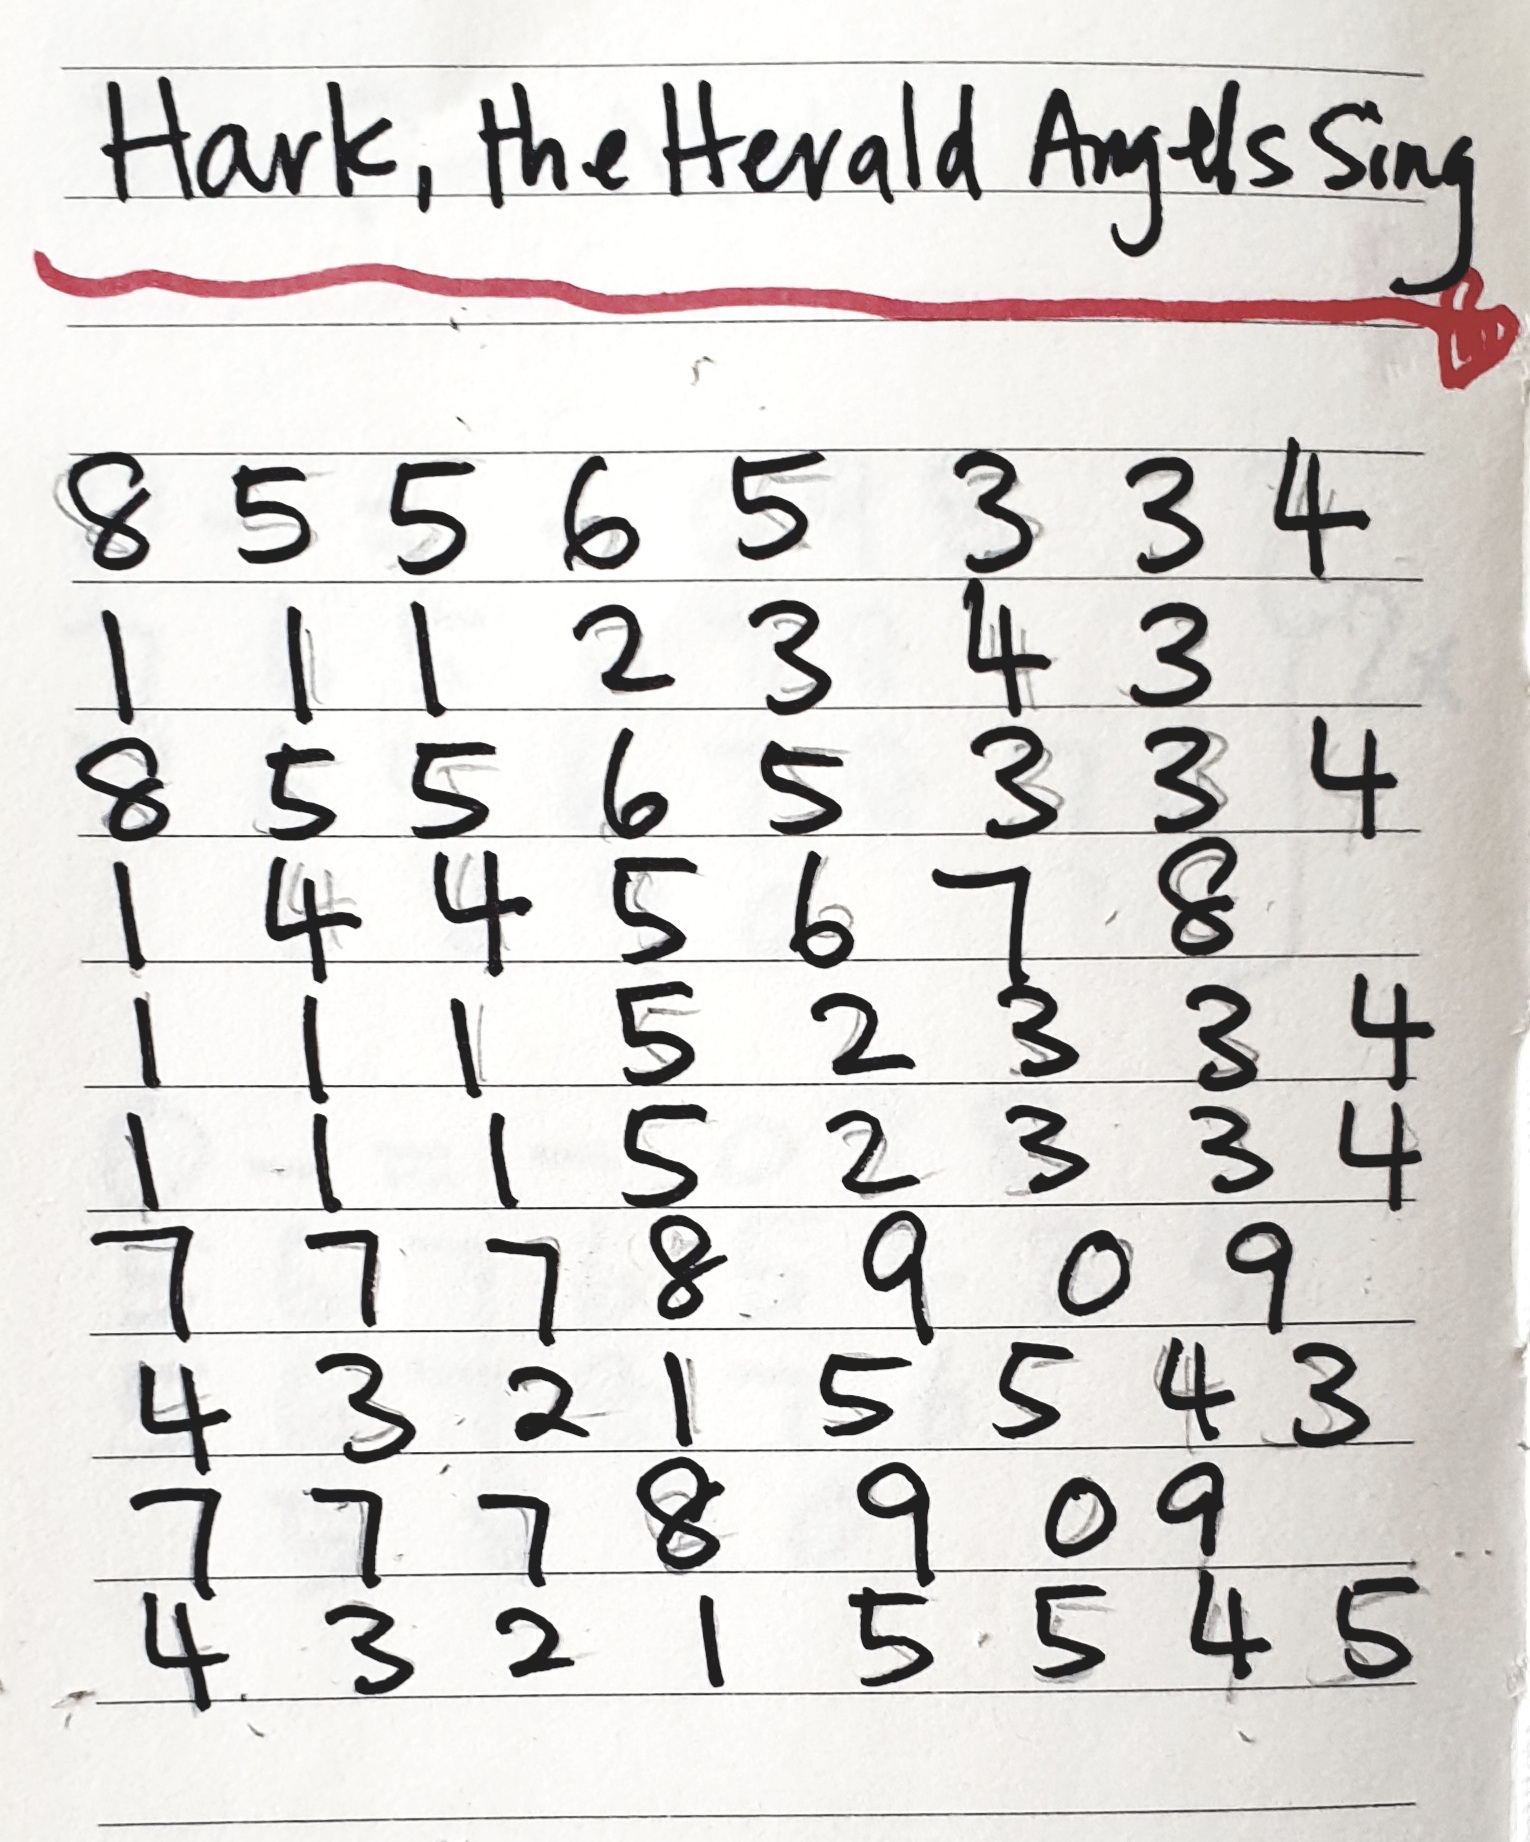 Hark, the Herald Angels Sing
8 5 5 6 5 3 3 4
1 1 1 2 3 4 3
8 5 5 6 5 3 3 4
1 4 4 5 6 7 8
1 1 1 5 2 3 3 4
1 1 1 5 2 3 3 4
7 7 7 8 9 0 9
4 3 2 1 5 5 4 3
7 7 7 8 9 0 9
4 3 2 1 5 5 4 5